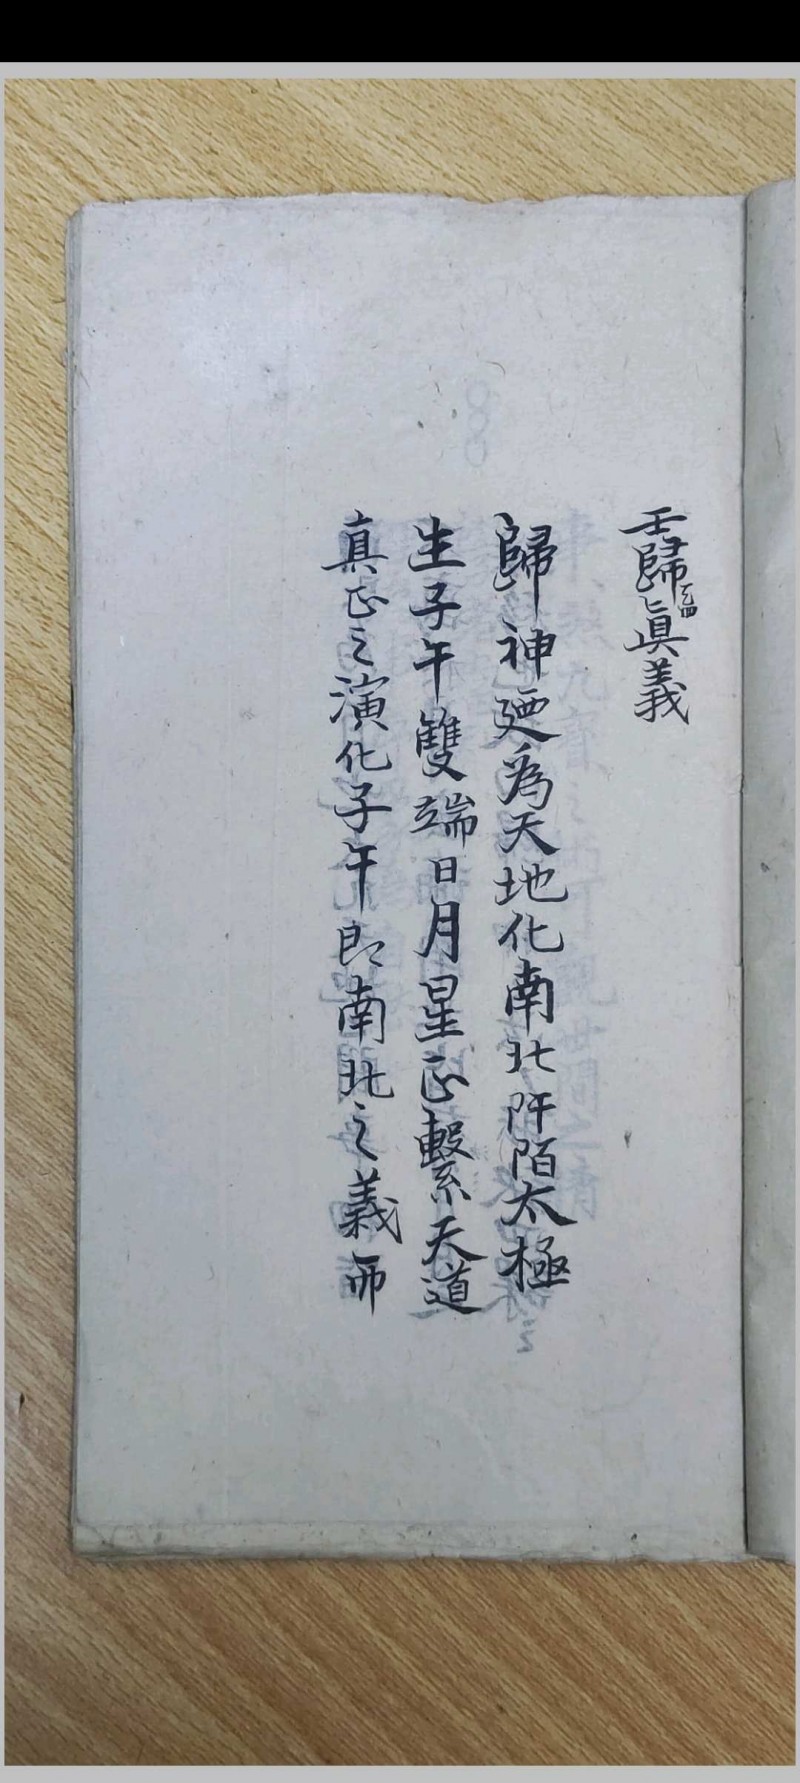 壬歸眞義
歸神廼為天地化南北阡陌太極
生子午雙端日月星正繫天道
真正之演化子午即南北之義而